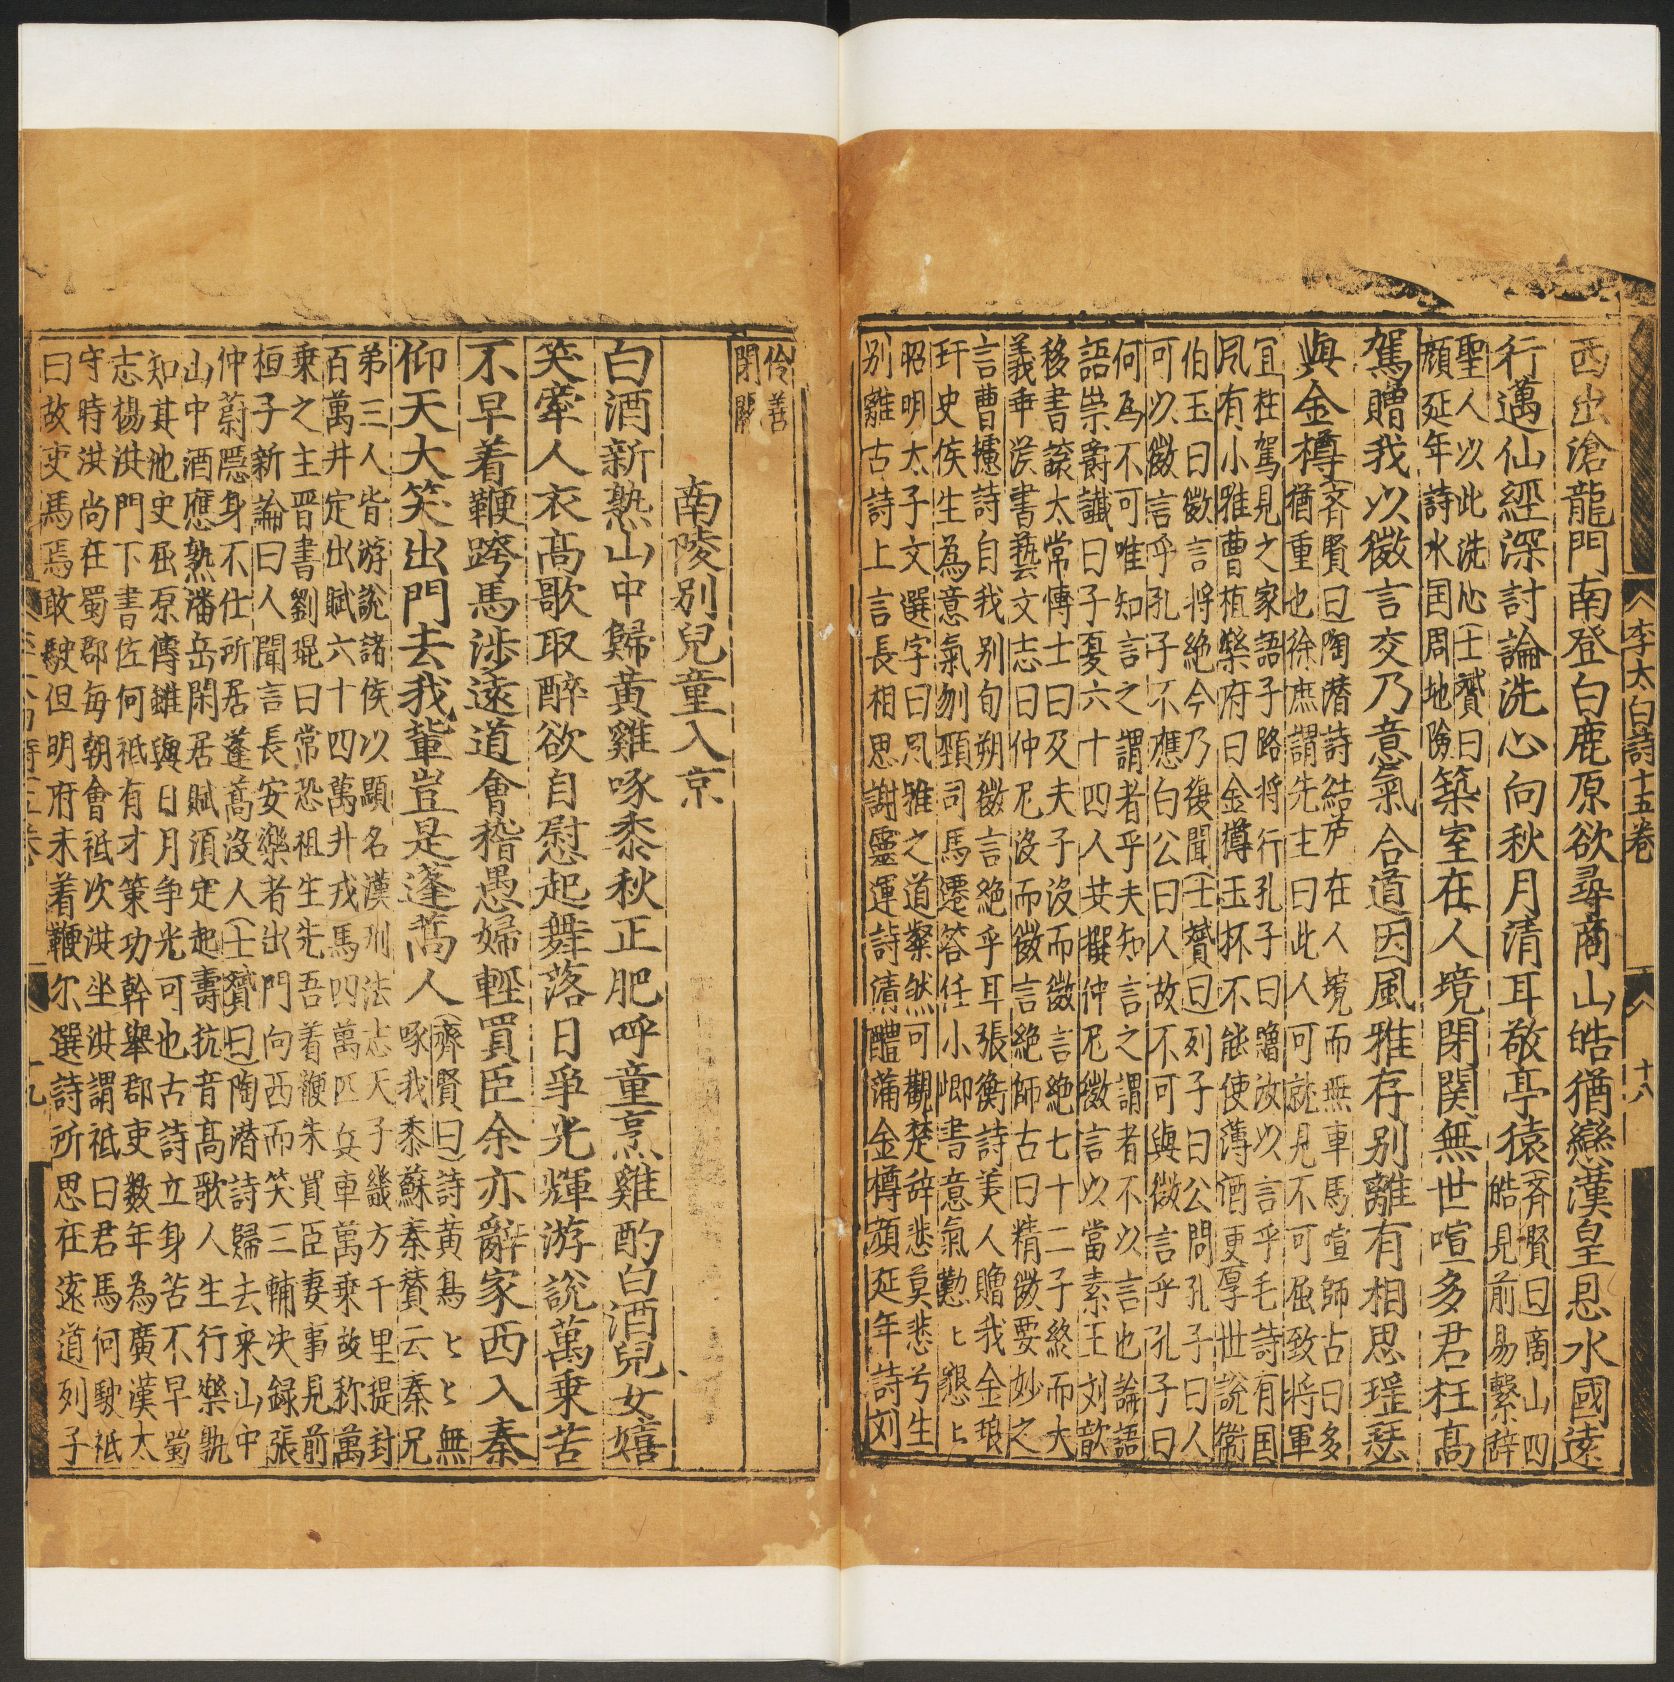 李太白詩十五卷 十八
西出滄龍門南登白鹿原欲尋商山皓猶戀漢皇恩水國遠
行邁仙經深討論洗心向秋月清耳敬亭猿(斉賢曰商山四
皓見前易繫辭
聖人以此洗心(士贇曰
顔延年詩水囯周地險築室在人境閉関無世喧多君枉高
駕贈我以微言交乃意氣合道因風雅存别離有相思瑶瑟
與金樽(斉賢曰陶潜詩結庐在人境而無車馬喧師古曰多
猶重也徐庶謂先主曰此人可就見不可屈致将軍
宜枉駕見之家語子路将行孔子曰贈汝以言乎毛詩有囯
風有小雅曹植樂府曰金樽玉杯不能使薄酒更厚世說衛
伯玉曰微言将絶今乃復聞(士贇曰)列子曰公問孔子曰人
可以微言乎孔子不應白公曰人故不可與微言乎孔子曰
何為不可唯知言之謂者乎夫知言之謂者不以言也論語
語崇爵讖曰子夏六十四人共撰仲尼微言以當素王刘歆
移書讓太常愽士曰及夫子沒而微言絶七十二子終而大
義乖漢書藝文志曰仲尼沒而微言絶師古曰精微要妙之
言曹攄詩自我别旬朔微言絶乎耳張衡詩美人贈我金琅
玕史侯生為意氣刎頸司馬遷答任小卿書意氣懃ヒ懇ヒ
昭明太子文選字曰風雅之道粲然可觀楚辞悲莫悲兮生
别離古詩上言長相思謝靈運詩清醴蒲金樽顔延年詩刘
伶善
閉關
南陵别兒童入京
白酒新熟山中歸黃雞啄黍秋正肥呼童烹雞酌白酒兒女嬉
笑牽人衣高歌取醉欲自慰起舞落日爭光輝游說萬乗苦
不早着鞭跨馬涉遠道會稽愚婦輕買臣余亦辭家西入秦
仰天大笑出門去我輩豈是蓬蒿人(齊賢曰)詩黄鳥ヒヒ無
啄我黍蘇秦賛云秦兄
弟三人皆游說諸侯以顯名漢刑法志天子畿方千里提封
百萬井定出賦六十四萬井戎馬四萬匹兵車萬乗故称萬
乗之主晋書劉琨曰常恐祖生先吾着鞭朱買臣妻事見前
桓子新論曰人聞言長安樂者出門向西而笑三輔决録張
仲蔚隱身不仕所居蓬蒿沒人(士贇曰)陶潜詩歸去来山中
山中酒應熟潘岳閑居賦湏定起壽抗音高歌人生行樂孰
知其他史屈原傳雖與日月争光可也古詩立身苦不早蜀
志楊洪門下書佐何祗有才策功幹舉郡吏数年為廣漢太
守時洪尚在蜀郡毎朝會祗次洪坐洪謂祗曰君馬何駛祗
曰故吏馬焉敢駛但明府未着鞭尔選詩所思在遠道列子
十九